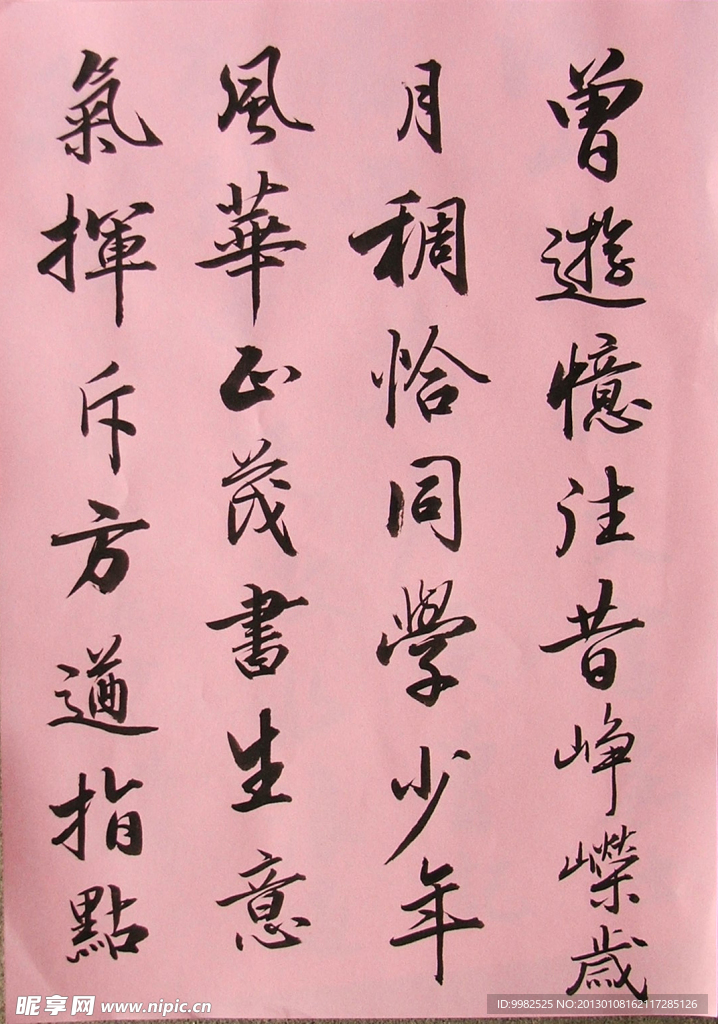 曾遊憶往昔崢嶸歲
月稠恰同學少年
風華正茂書生意
氣揮斥方遒指點
昵享网 www.nipic.cn
ID:9982525 NO:20130108162117285126